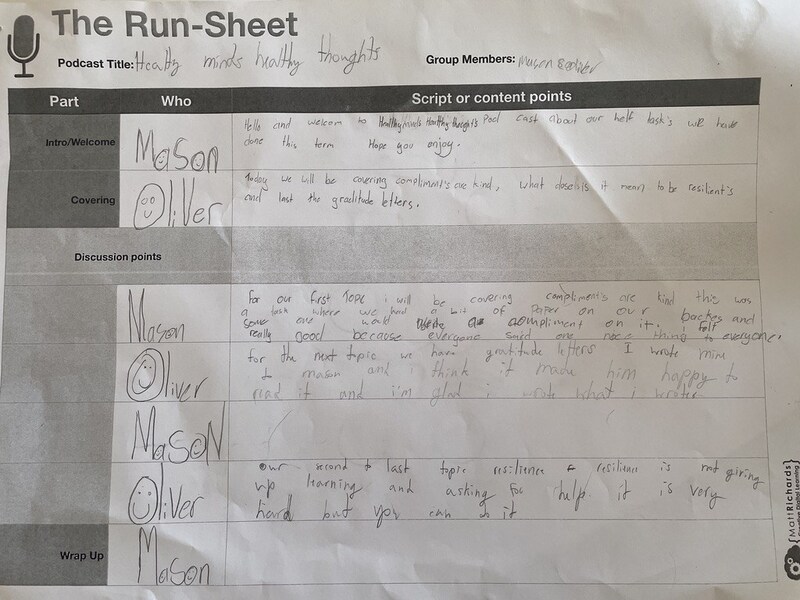 The Run-Sheet
Podcast Title: Healty minds healthy thoughts
Group Members: Mason & Oliver
Part Who Script or content points
Intro/Welcome
Mason
Hello and welcom to Healthy minds Healthy thoughts Pod cast about our helf task's we have
done this term Hope you enjoy.
Covering
Oliver
Today we will be covering compliment's are kind, what does is it mean to be resilient's
and last the graditude letters.
Discussion points
Mason
For our first Tope i will be covering compliment's are kind this was
a task where we had a bit of Paper on our backes and
some one would write a compliment on it. i felt
really good because everyone said one nice thing to everyone.
Oliver
for the next topic we have gratitude letters I wrote mine
to mason and i think it made him happy to
read it and i'm glad i wrote what i
Mason
Oliver
our second to last topic resilience resilience is not giving
up learning and asking for help. it is very
hard but you can do it
Wrap Up
Mason
{MattRichards}